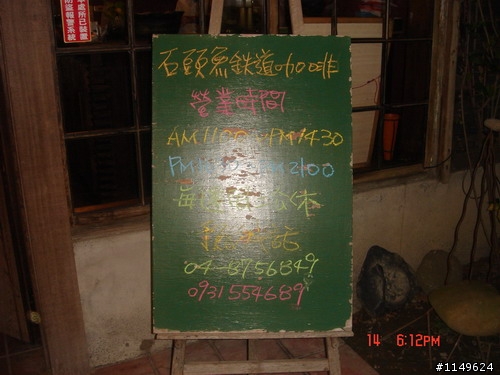 本處所已裝置
防盜報警系統
石頭魚鉄道咖啡
營業時間
AM 11:00 PM 14:30
PM 2100
每 休
話
04-8756849
0931554689
14 6:12PM
#1149624